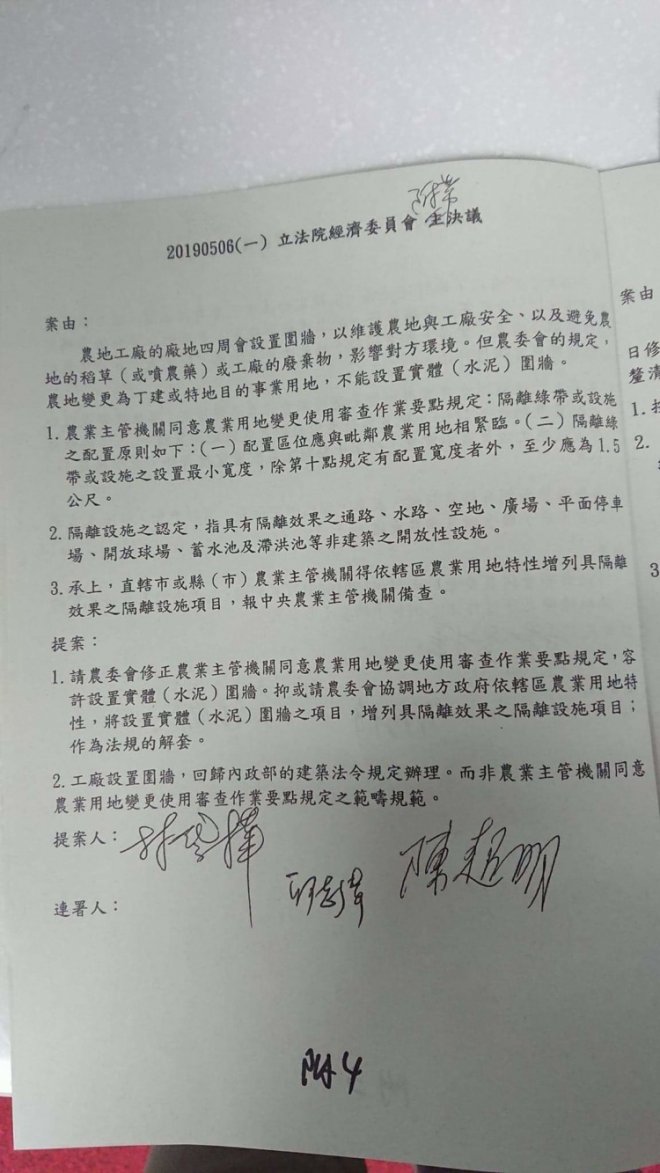 附帶
20190506(一) 立法院經濟委員會 主決議
案由：
農地工廠的廠地四周會設置圍牆，以維護農地與工廠安全、以及避免農
地的稻草（或噴農藥）或工廠的廢棄物，影響對方環境。但農委會的規定，
農地變更為丁建或特地目的事業用地，不能設置實體（水泥）圍牆。
1. 農業主管機關同意農業用地變更使用審查作業要點規定：隔離綠帶或設施
之配置原則如下：(一) 配置區位應與毗鄰農業用地相緊臨。(二) 隔離綠
帶或設施之設置最小寬度，除第十點規定有配置寬度者外，至少應為 1.5
公尺。
2. 隔離設施之認定，指具有隔離效果之通路、水路、空地、廣場、平面停車
場、開放球場、蓄水池及滯洪池等非建築之開放性設施。
3. 承上，直轄市或縣（市）農業主管機關得依轄區農業用地特性增列具隔離
效果之隔離設施項目，報中央農業主管機關備查。
提案：
1. 請農委會修正農業主管機關同意農業用地變更使用審查作業要點規定，容
許設置實體（水泥）圍牆。抑或請農委會協調地方政府依轄區農業用地特
性，將設置實體（水泥）圍牆之項目，增列具隔離效果之隔離設施項目；
作為法規的解套。
2. 工廠設置圍牆，回歸內政部的建築法令規定辦理。而非農業主管機關同意
農業用地變更使用審查作業要點規定之範疇規範。
提案人：
陳超明
連署人：
附4
案由
日修
釐清
1.
2.
3